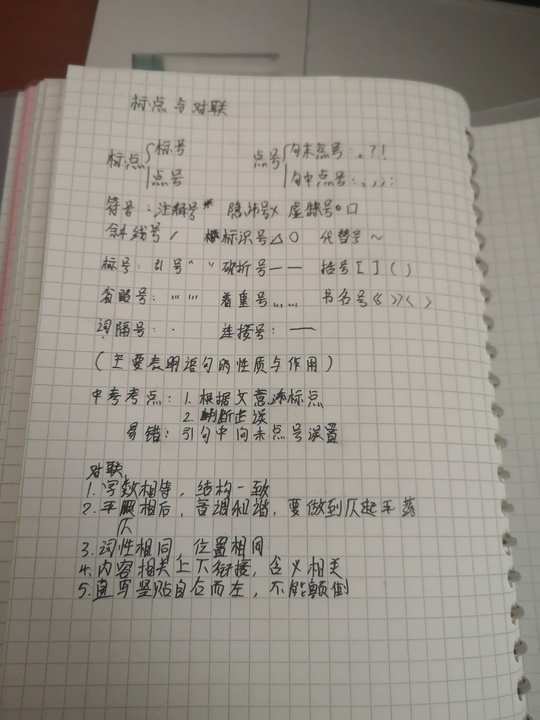 标点与对联
标点{标号 点号{句末点号:。?!
点号 句中点号:、,;:
符号:注释号* 隐讳号× 虚缺号□
斜线号/ 标识号△○ 代替号~
标号:引号“ ” 破折号—— 括号[ ]( )
省略号:…… 着重号…… 书名号《》〈 〉
词隔号:· 连接号:—
(主要表明语句的性质与作用)
中考考点:1.根据文意添标点
2.判断正误
易错:引句中间末点号误置
对联
1.字数相等,结构一致
2.平仄相后,音调和谐,要做到仄起平落
仄
3.词性相同 位置相同
4.内容相关上下衔接,含义相关
5.直写竖贴自右而左,不能颠倒